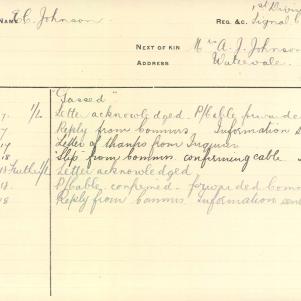 NAME E C Johnson. REG. &C. 1st Divis
Signal C
NEXT OF KIN Mrs A. J. Johnson
ADDRESS Watervale.
"Gassed"
7 1/2 Letter acknowledged. P/Cable forwarde
7. Reply from commrs. Information s
17 Letter of thanks from Inquirer
18 Slip from commrs. confirming cable
18 Further 1/2 Letter acknowledged
18. P/Cable confirmed - forwarded Comm
18 Reply from commrs. Information sen